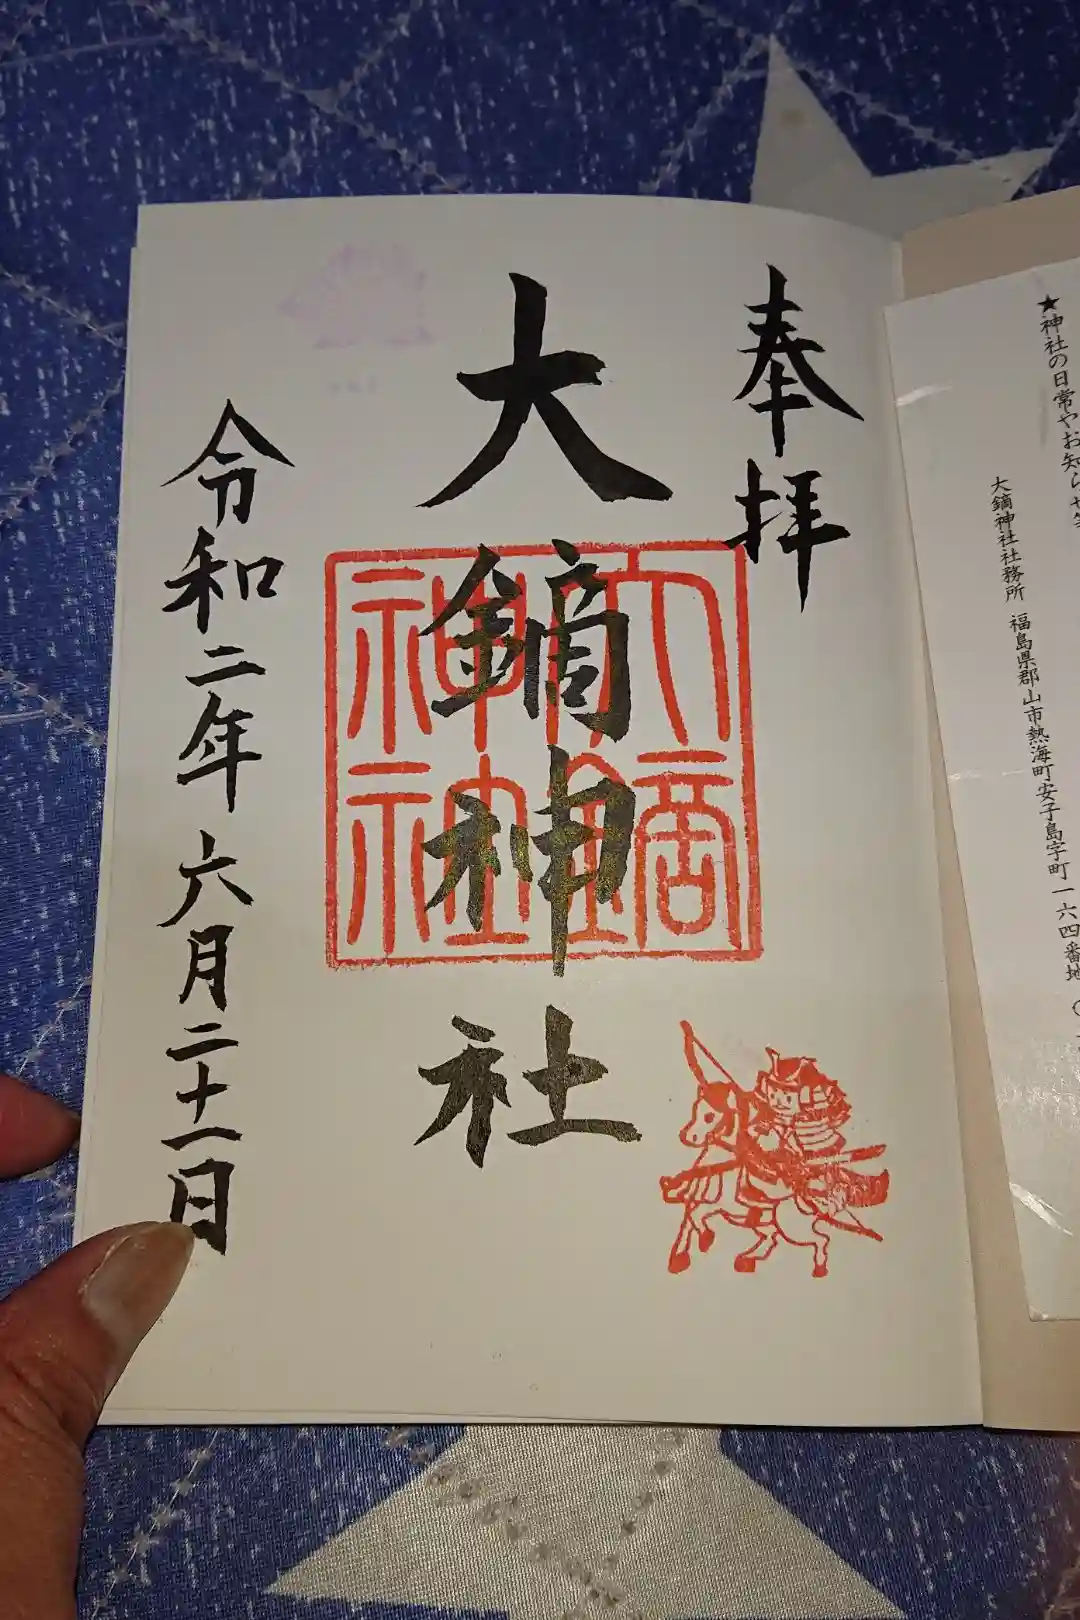 ★神社の日常やお知らせ等
大鏑神社社務所 福島県郡山市熱海町安子島字町一六四番地
奉拝
大鏑神社
大鏑神社
令和二年六月二十一日